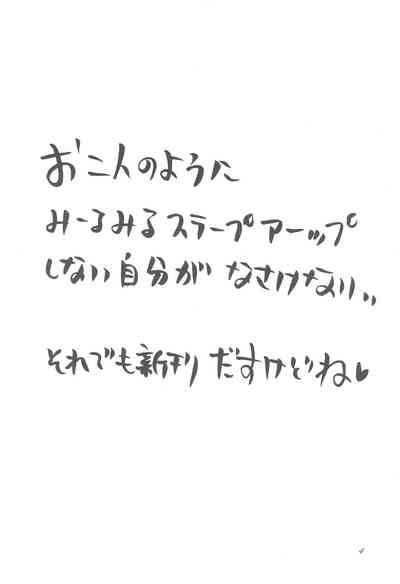 お二人のように
みーるみるスラープアーップ
しない自分が なさけない〟
それでも新刊 だすけどね♥
4